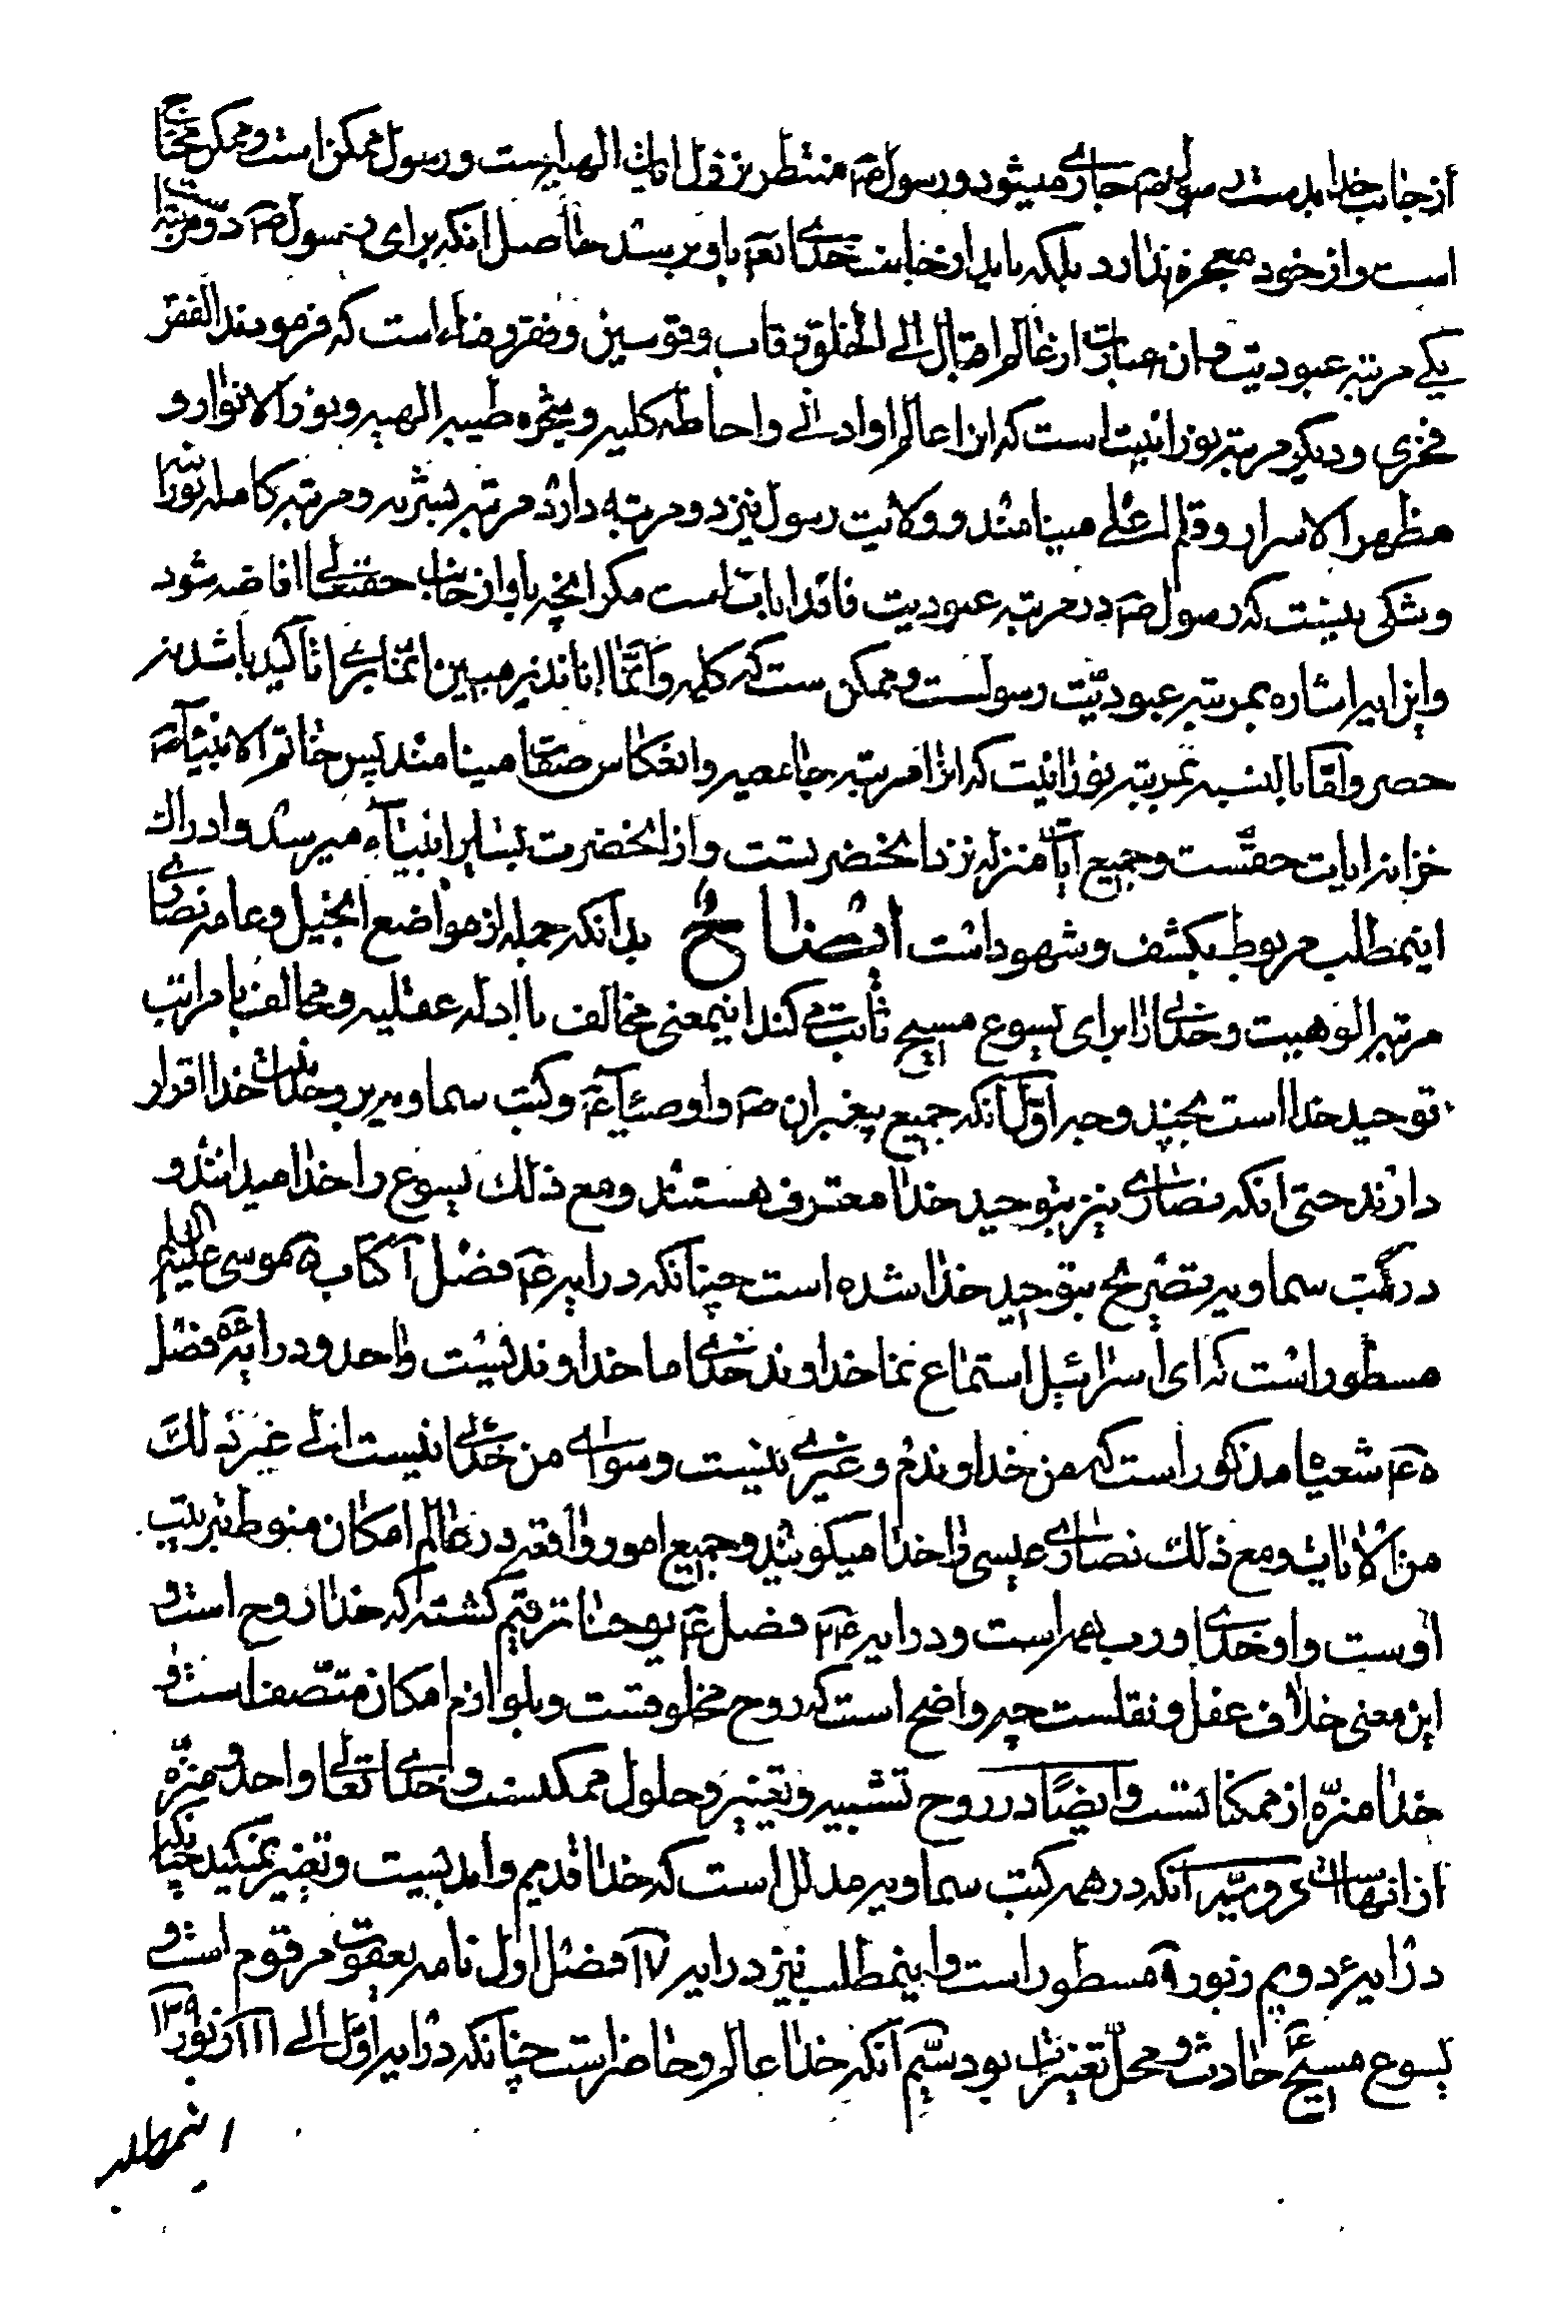 از جانب خدا بدست رسول ص جاری میشود و رسول ص منتظر نزول ایات الهیه است و رسول ممکن است و ممکن محتاج
است و از خود معجزه ندارد بلکه باید از جانب خدای تعم باو برسد حاصل انکه برای رسول ص دو مرتبه است
یکی مرتبه عبودیت و ان عبارت از عالم اقبال الی الخلق و قاب و قوسین و فقر و فناء است که فرمودند الفقر
فخری و دیگر مرتبه نورانیت است که انرا عالم او ادنی و احاطه کلیه و شجره طیبه الهیه و نور الانوار و
مظهر الاسرار و قلم اعلی مینامند و ولایت رسول نیز دو مرتبه دارد مرتبه بشریه و مرتبه کامله نورانیه
و شکی نیست که رسول ص در مرتبه عبودیت فاقد ایات است مکر انچه باو از جانب حقتعالی افاضه شود
و این ایه اشاره بمرتبه عبودیت رسولست و ممکن ست که کلمه و انما انا نذیر مبین انما برای تاکید باشد نه
حصر و اما بالنسبه بمرتبه نورانیت که انرا مرتبه جامعیه و انعکاس صفات مینامند پس خاتم الانبیاء ص
خزانه ایات حقست و جمیع ایات منزله نزد انحضرتست و از انحضرت بسایر انبیاء میرسد و ادراک
اینمطلب مربوط بکشف و شهود است ایضاح بدانکه جمله از مواضع انجیل و عامه نصاری
مرتبه الوهیت و خدائی را برای یسوع مسیح ثابت می کند اینمعنی مخالف با ادله عقلیه و مخالف با مراتب
توحید خدا است بچند وجه اول انکه جمیع پیغمبران ص و اوصیاء ع و کتب سماویه بر وحدانیت خدا اقرار
دارند حتی انکه نصاری نیز بتوحید خدا معترف هستند و مع ذلک یسوع را خدا میدانند و
در کتب سماویه تصریح بتوحید خدا شده است چنانکه در ایه ۴ فصل ۶ کتاب ۵ موسی علیه السلام
مسطور است که ای اسرائیل استماع نما خداوند خدای ما خداوندیست واحد و در ایه ۵ فصل
۴۵ شعیاه مذکور است که من خداوندم و غیری نیست و سوای من خدائی نیست الی غیر ذلک
من الایات و مع ذلک نصاری عیسی را خدا میکویند و جمیع امور واقعه در عالم امکان منوط بتربیت
اوست و او خدای و رب همه است و در ایه ۲۴ فصل ۴ یوحنا ترقیم کشته که خدا روح است و
این معنی خلاف عقل و نقلست چه واضح است که روح مخلوقست و بلوازم امکان متصف است و
خدا منزه از ممکناتست و ایضًا در روح تشبیه و تغییر و حلول ممکنست و خدای تعالی واحد و منزه
از انهاست دویم انکه در همه کتب سماویه مدلل است که خدا قدیم و ابدیست و تغییر نمیکند چنانکه
در ایه دویم زبور ۹۰ مسطور است و اینمطلب نیز در ایه ۱۷ فصل اول نامه یعقوب مرقوم است و
یسوع مسیح ع حادث و محل تغییرات بود سیم انکه خدا عالم و حاضر است چنانکه در ایه اول الی ۱۱ از زبور ۱۳۹
اینمطلب